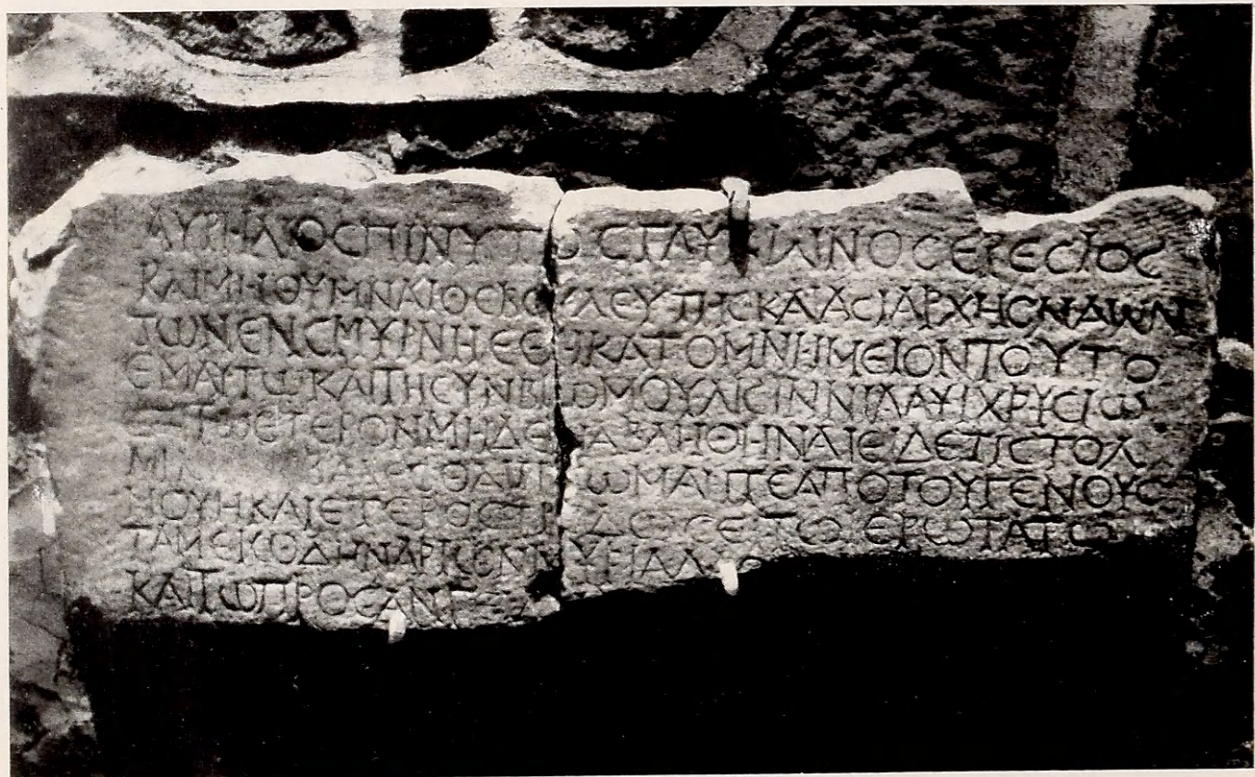 ΑΥΡΗΛΙΟϹΠΙΝΥΤΟϹΓΛΥΚΩΝΟϹΕΡΕϹΙΟϹ
ΚΑΙΜΗΘΥΜΝΑΙΟϹΒΟΥΛΕΥΤΗϹΚΑΙΑϹΙΑΡΧΗϹΝΑΩΝ
ΤΩΝΕΝϹΜΥΡΝΗΕΘΗΚΑΤΟΜΝΗΜΕΙΟΝΤΟΥΤΟ
ΕΜΑΥΤΩΚΑΙΤΗϹΥΝΒΙΩΜΟΥ ΧΡΥϹΙΩ
ΕΤΕΡΟΝΜΗΔΕΝΑΒΛΗΘΗΝΑΙΕΙΔΕΤΙϹΤΟΛ
ΠΤΩΜΑΗΤΕΑΠΟΤΟΥΓΕΝΟΥϹ
ΜΟΥΗΚΑΙΕΤΕΡΟϹΤΙϹΔΩϹΕΙΤΩΙΕΡΩΤΑΤΩ
ΤΑΜΕΙΩΔΗΝΑΡΙΩΝ
ΚΑΙΤΩΠΡΟϹΑΝΓ